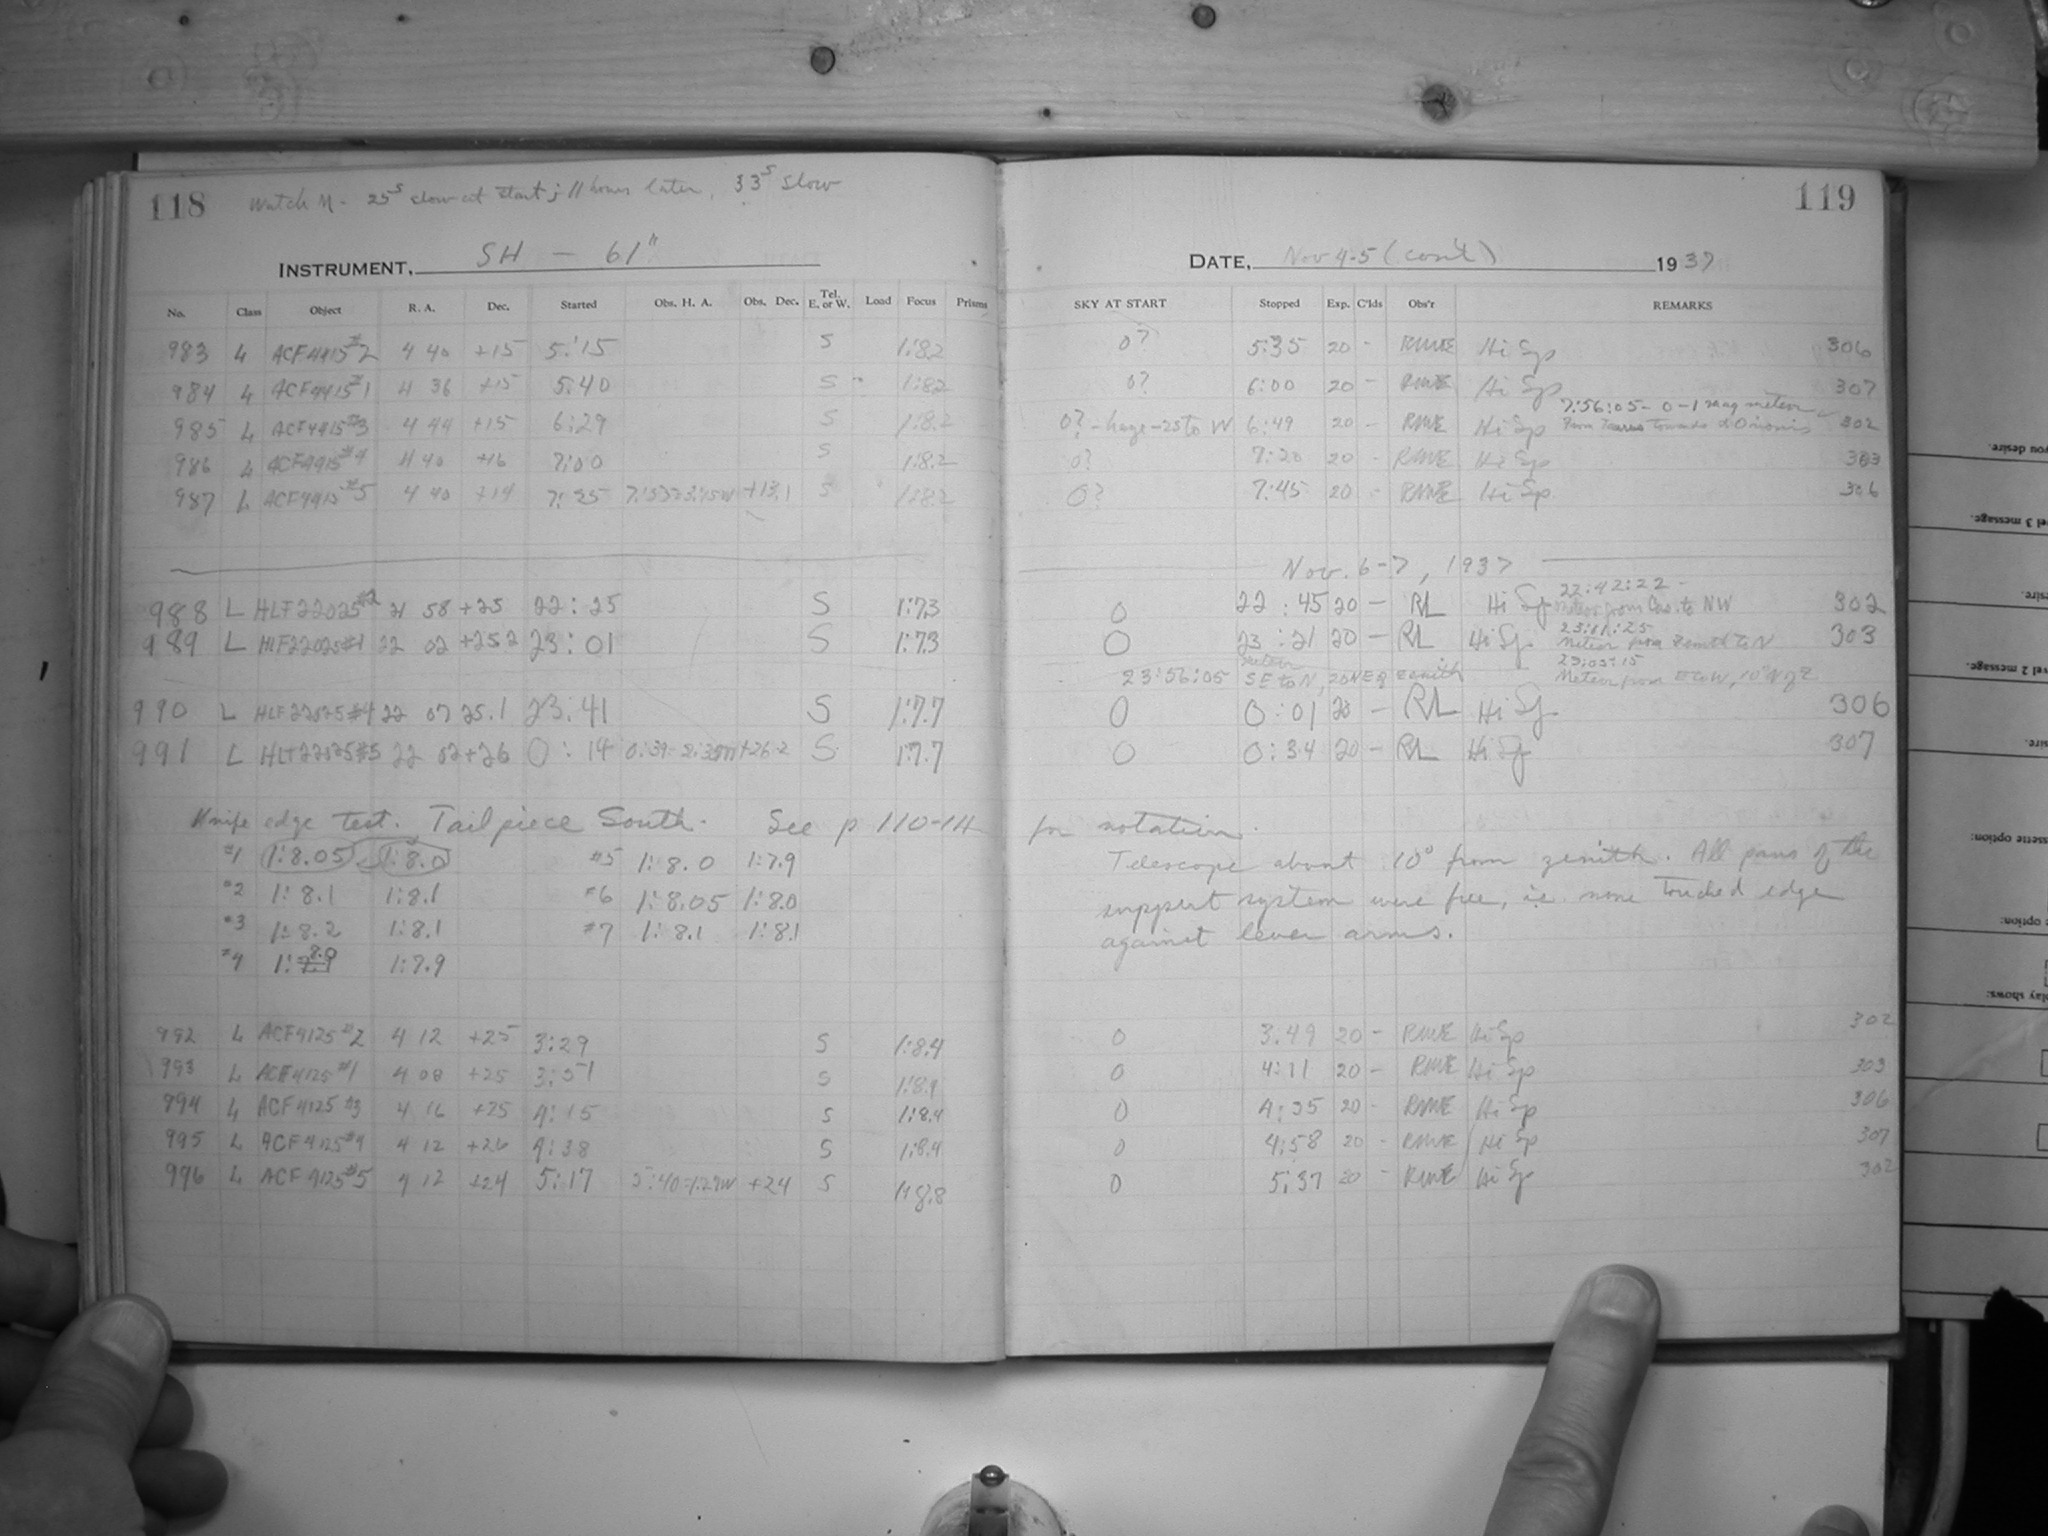 118 Watch M - 25s slow at start; 11 hours later, 33s slow
119
INSTRUMENT, SH — 61"
DATE, Nov 4-5 (con't) 1937
No. Class Object R. A. Dec. Started Obs. H. A. Obs. Dec. Tel. E. or W. Load Focus Prisms SKY AT START Stopped Exp. C'lds Obs'r REMARKS
983 L ACF4415#2 4 40 +15 5:15 S 1:8.2 0? 5:35 20 - RMWE Hi Sp 306
984 L ACF4415#1 4 36 +15 5:40 S 1:8.2 0? 6:00 20 - RMWE Hi Sp 307
7:56:05 - 0-1 mag meteor
985 L ACF4415#3 4 44 +15 6:29 S 1:8.2 0? - haze - 25 to W 6:49 20 - RMWE Hi Sp from Taurus towards α Orionis 302
986 L ACF4415#4 4 40 +16 7:00 S 1:8.2 0? 7:20 20 - RMWE Hi Sp 303
987 L ACF4415#5 4 40 +14 7:25 +13.1 S 1:8.2 0? 7:45 20 - RMWE Hi Sp 306
Nov. 6-7, 1937
22:42:22 -
988 L HLF22025#2 21 58 +25 22:25 S 1:7.3 0 22:45 20 - RL Hi Sp Meteor from Cas. to NW 302
23:11:25
989 L HLF22025#1 22 02 +25.2 23:01 S 1:7.3 0 23:21 20 - RL Hi Sp Meteor from Zenith to N 303
23:56:05 Meteor SE to N, 20 NE of Zenith
Meteor from E to W, 10° N of Z
990 L HLF22025#4 22 07 25.1 23:41 S 1:7.7 0 0:01 20 - RL Hi Sp 306
991 L HLF22025#5 22 02 +26 0:14 +26.2 S 1:7.7 0 0:34 20 - RL Hi Sp 307
Knife edge test. Tailpiece South. See p 110-14 for notation.
#1 1:8.05 1:8.0 #5 1:8.0 1:7.9
#2 1:8.1 1:8.1 #6 1:8.05 1:8.0
#3 1:8.2 1:8.1 #7 1:8.1 1:8.1
#4 1:8.0 1:7.9
Telescope about 10° from zenith. All pans of the
support system were free, i.e. none touched edge
against lever arms.
992 L ACF4125#2 4 12 +25 3:29 S 1:8.4 0 3:49 20 - RMWE Hi Sp 302
993 L ACF4125#1 4 08 +25 3:51 S 1:8.4 0 4:11 20 - RMWE Hi Sp 303
994 L ACF4125#3 4 16 +25 4:15 S 1:8.4 0 4:35 20 - RMWE Hi Sp 306
995 L ACF4125#4 4 12 +26 4:38 S 1:8.4 0 4:58 20 - RMWE Hi Sp 307
996 L ACF4125#5 4 12 +24 5:17 5:40-1:29W +24 S 1:8.8 0 5:37 20 - RMWE Hi Sp 302
you desire.
el 3 message.
sire.
vel 2 message.
sire.
sette option:
e option:
play shows: